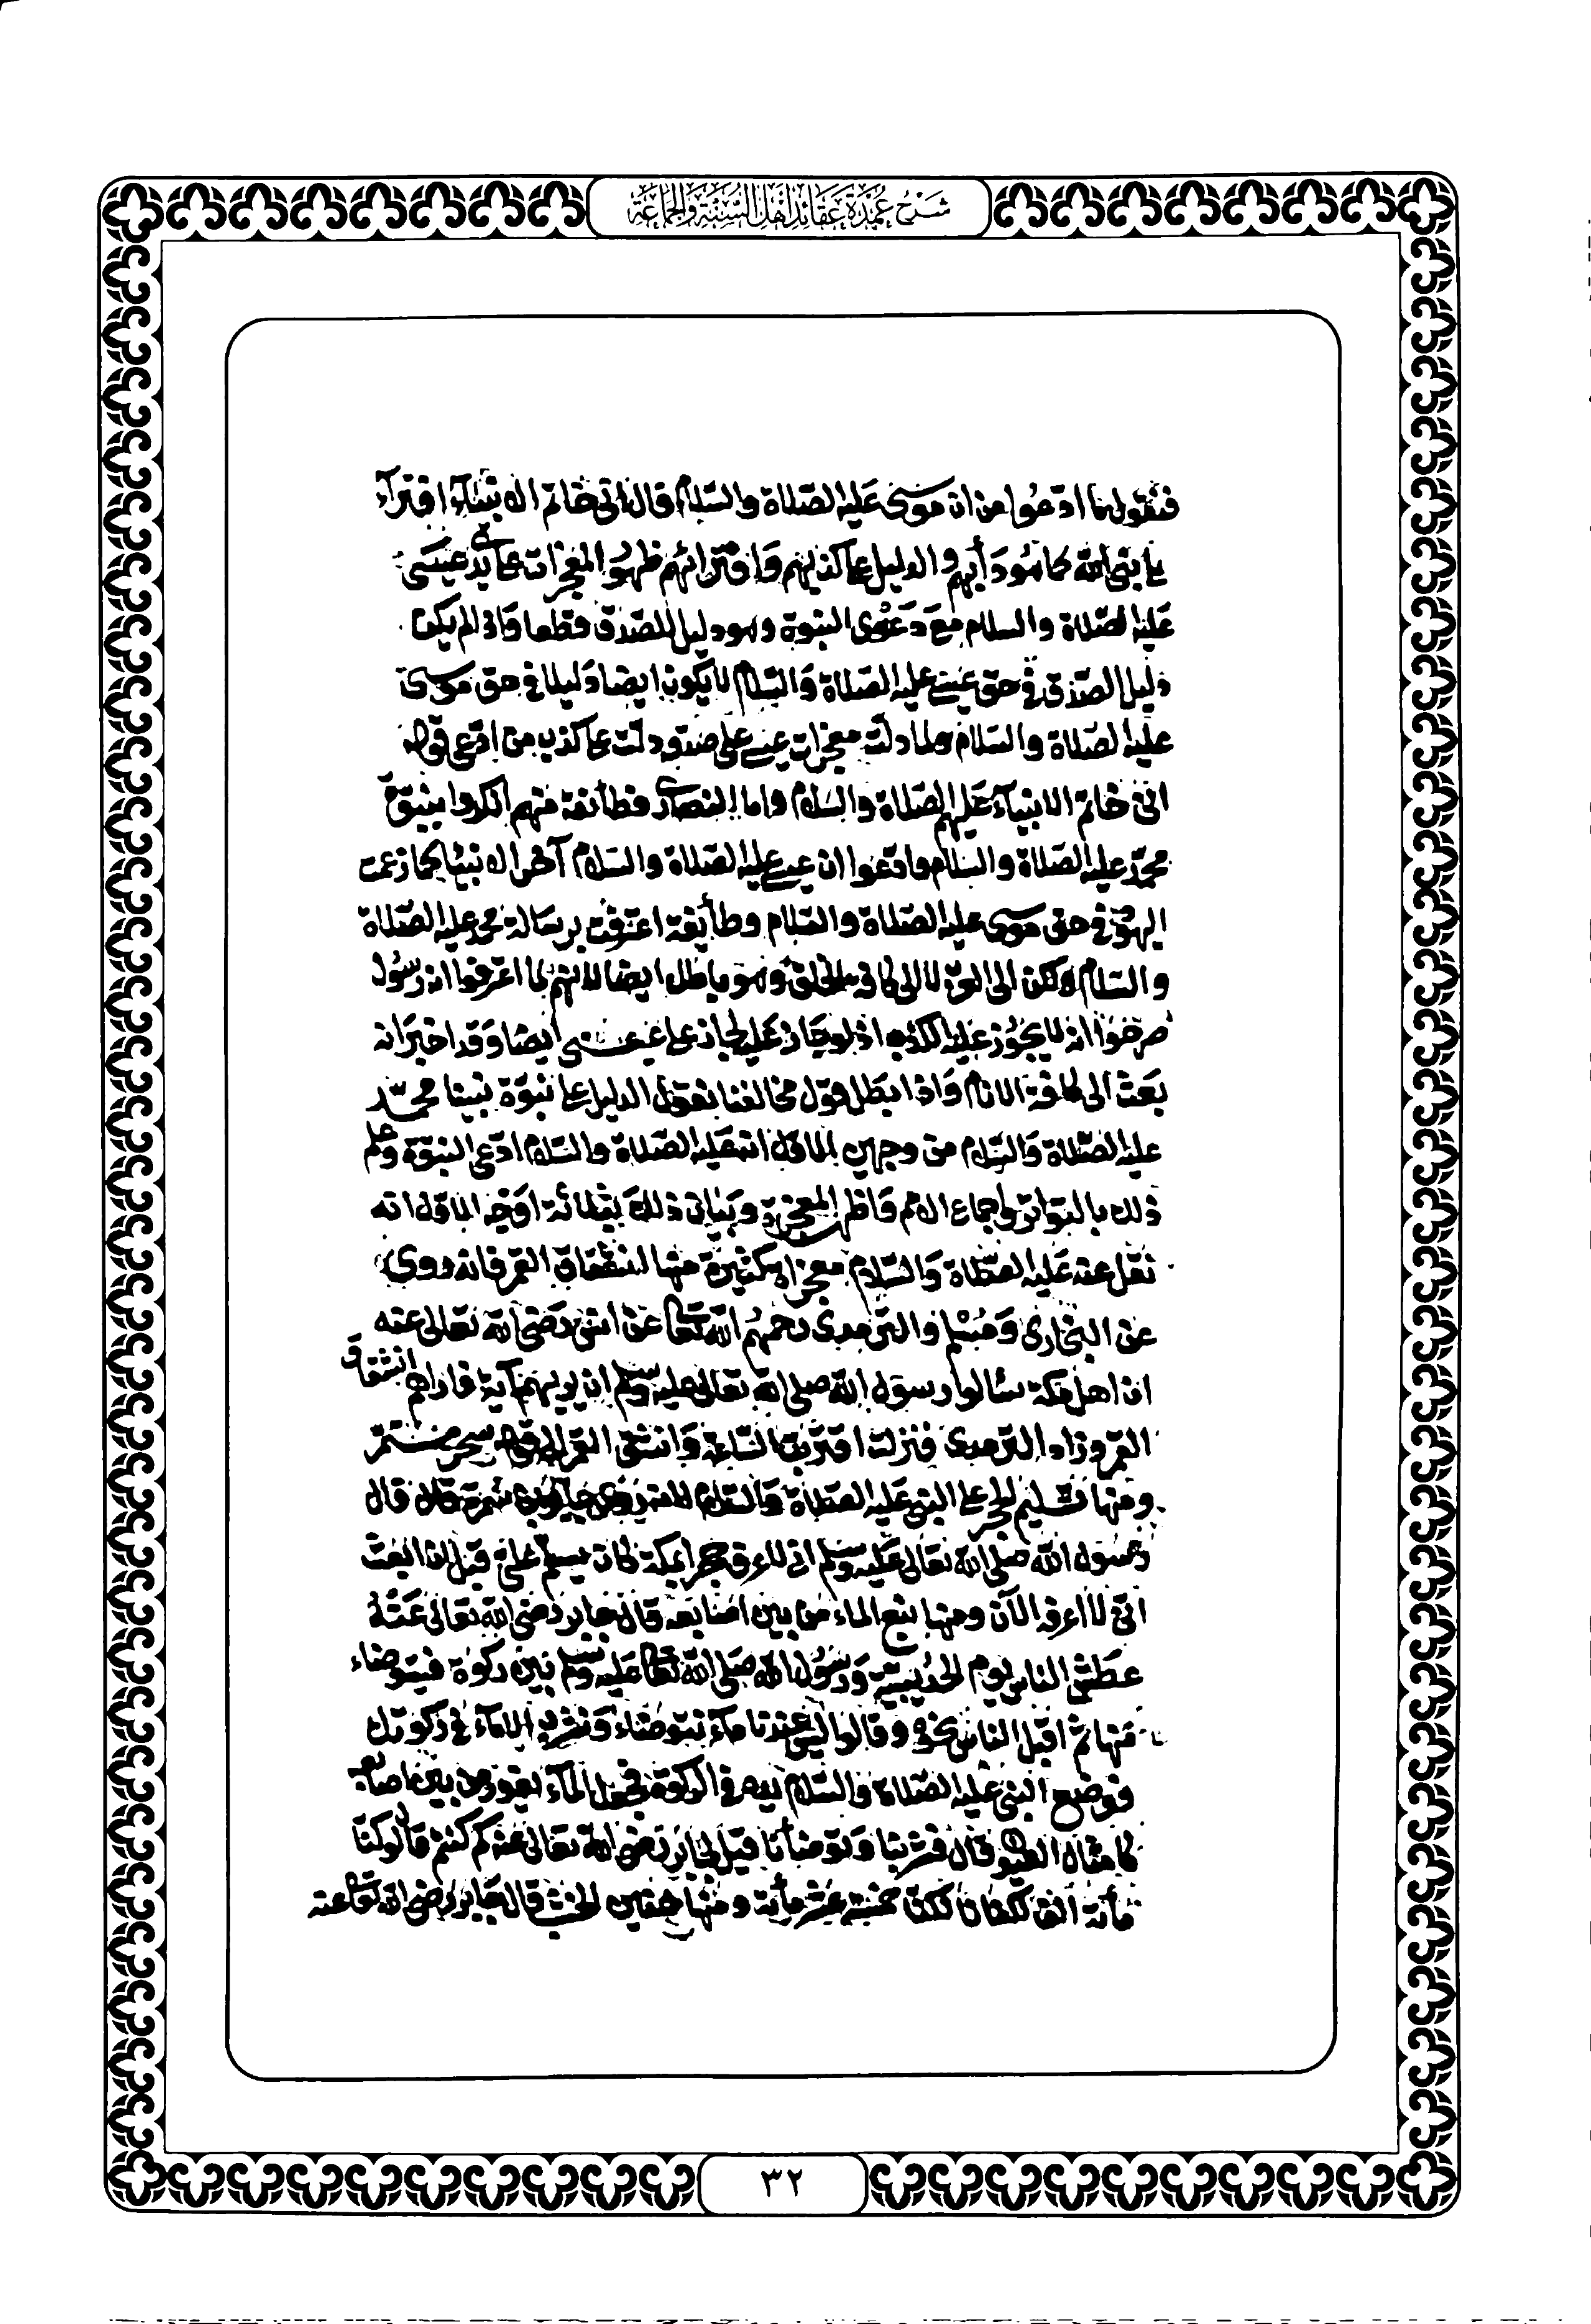 شرح عمدة عقائد أهل السنة والجماعة
فنقول ما ادعوا من ان موسى عليه الصلاة والسلام قال انى خاتم الانبياء افتراء
على نبى الله كما هو دأبهم والدليل على كذبهم وافترائهم ظهور المعجزات على يد عيسى
عليه الصلاة والسلام مع دعوى النبوة وهو دليل الصدق قطعا واذ لم يكن
دليل الصدق فى حق عيسى عليه الصلاة والسلام لا يكون ايضا دليلا فى حق موسى
عليه الصلاة والسلام ولما دلت معجزات عيسى على صدقه دلت على كذب من ادعى قوله
انى خاتم الانبياء عليهم الصلاة والسلام واما النصارى فطائفة منهم انكروا بنبوة
محمد عليه الصلاة والسلام وادعوا ان عيسى عليه الصلاة والسلام آخر الانبياء كما زعمت
اليهود فى حق موسى عليه الصلاة والسلام وطائفة اعترفت برسالة محمد عليه الصلاة
والسلام لكن الى العرب لا الى كافة الخلق وهو باطل ايضا لانهم لما اعترفوا انه رسول
عرفوا انه لا يجوز عليه الكذب اذ لو جاز عليه لجاز على عيسى ايضا وقد اخبر انه
بعث الى كافة الانام واذا بطل قول مخالفنا نقول الدليل على نبوة نبينا محمد
عليه الصلاة والسلام من وجهين الاول انه عليه الصلاة والسلام ادعى النبوة وعلم
ذلك بالتواتر واجماع الامم واظهر المعجزة وبيان ذلك بثلاثة اوجه الاول انه
نقل عنه عليه الصلاة والسلام معجزات كثيرة منها انشقاق القمر فانه روى
عن البخارى ومسلم والترمدى رحمهم الله تعالى عن انس رضى الله تعالى عنه
ان اهل مكة سالوا رسول الله صلى الله تعالى عليه وسلم ان يريهم آية فاراهم انشقاق
القمر وزاد الترمدى فنزلت اقتربت الساعة وانشق القمر الى قوله سحر مستمر
ومنها تسليم الحجر على النبى عليه الصلاة والسلام لانه روى جابر بن سمرة قال قال
رسول الله صلى الله تعالى عليه وسلم انى لاعرف حجرا بمكة كان يسلم على قبل ان ابعث
انى لااعرفه الآن ومنها نبع الماء من بين اصابعه قال جابر رضى الله تعالى عنه
عطش الناس يوم الحديبية ورسول الله صلى الله تعالى عليه وسلم بين ركوة فيتوضاء
منها ثم اقبل الناس نحوه وقالوا ليس عندنا ماء نتوضاء ونشرب الا ماء فى ركوتك
فوضع النبى عليه الصلاة والسلام يده فى الركوة فجعل الماء يفور من بين اصابعه
كامثال العيون قال فشربنا وتوضأنا قيل لجابر رضى الله تعالى عنه كم كنتم قال لو كنا
مائة الف لكفانا كنا خمسة عشر مأية ومنها حنين الخشب قال جابر رضى الله تعالى عنه
٣٢